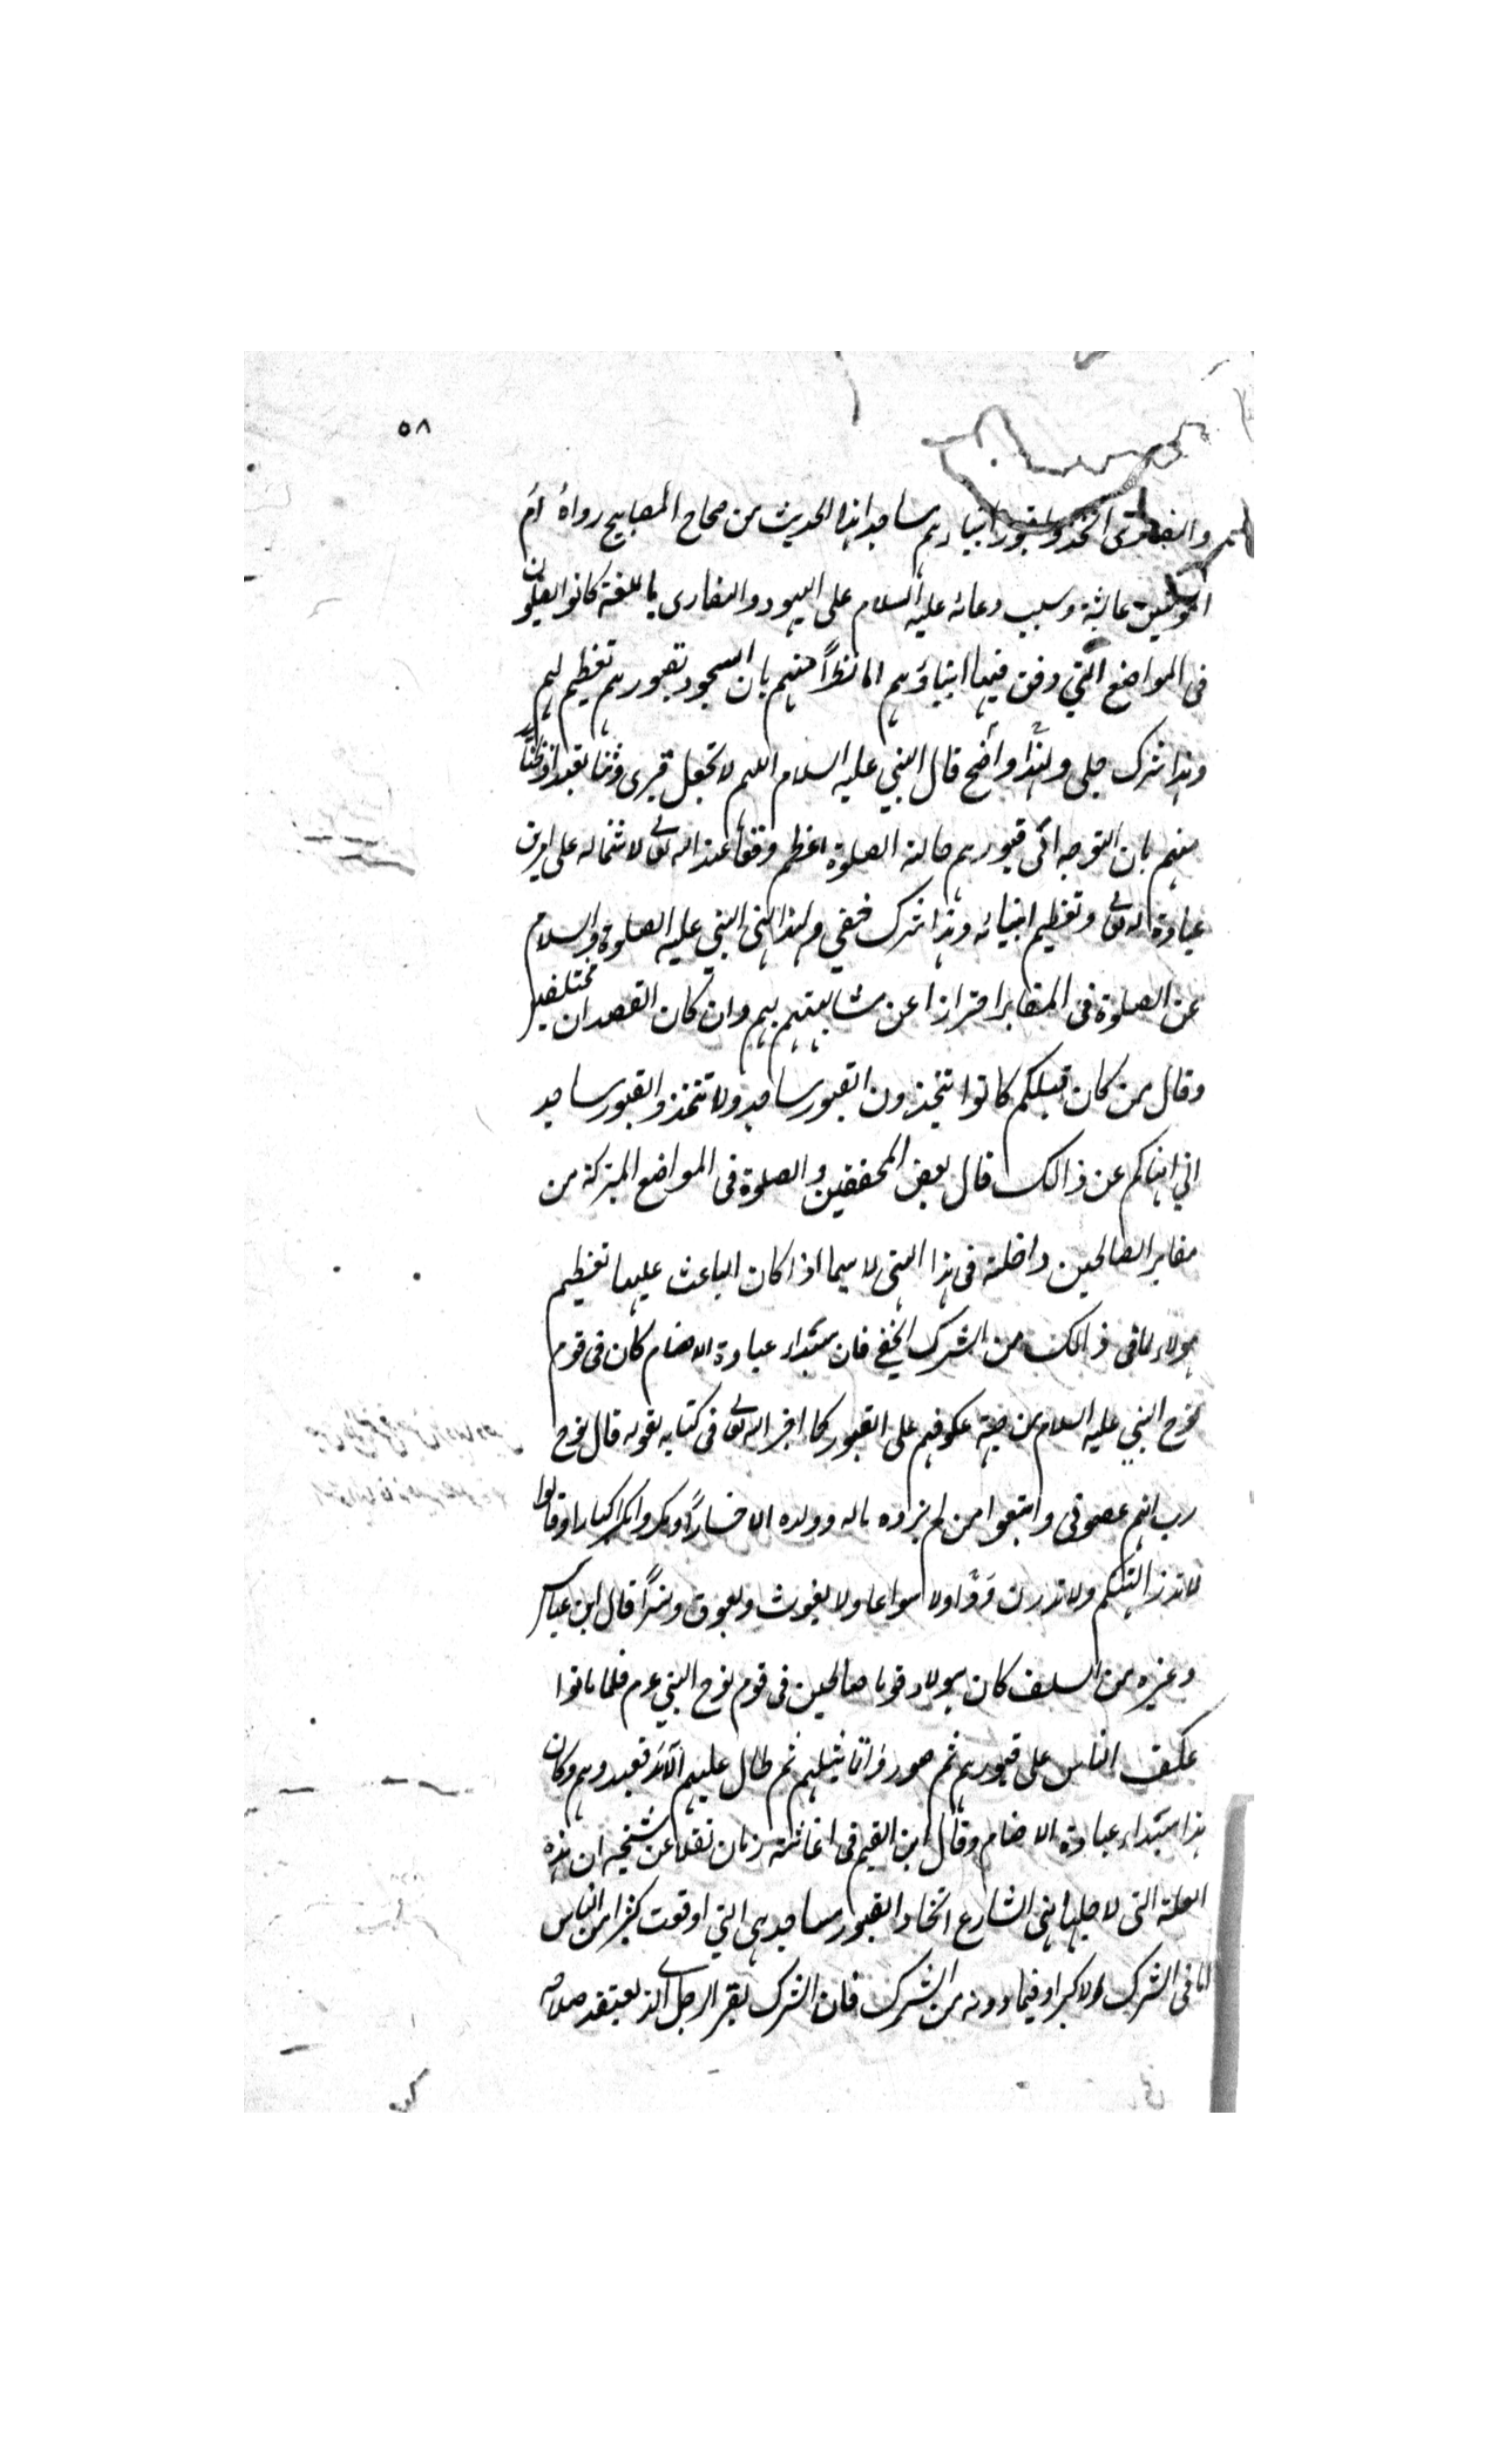 ٥٨
والنصارى اتخذوا قبور انبيائهم مساجد هذا الحديث من صحاح المصابيح رواه ام
المؤمنين عائشة وسبب دعائه عليه السلام على اليهود والنصارى باللعنة كانوا يصلون
فى المواضع التي دفن فيها انبياؤهم اما نظراً منهم بان السجود بقبورهم تعظيم لهم
وهذا شرك جلى ولهذا واضح قال النبي عليه السلام اللهم لا تجعل قبرى وثنا يعبد او ظنّاً
منهم بان التوجه الى قبورهم حالة الصلوة اعظم وقفا عند الله تعالى لاشتماله على امرين
عبادة الله تعالى وتعظيم انبيائه وهذا شرك خفي ولهذا نهى النبي عليه الصلوة والسلام
عن الصلوة فى المقابر احترازا عن مشابهتهم بهم وان كان القصدان مختلفين
وقال من كان قبلكم كانوا يتخذون القبور مساجد ولا تتخذوا القبور مساجد
اني انهاكم عن ذالك قال بعض المحققين والصلوة فى المواضع المتبركة من
مقابر الصالحين داخلة فى هذا النهى لا سيما اذا كان الباعث عليها تعظيم
هولاء لما فى ذالك من الشرك الخفي فان مبتداء عبادة الاصنام كان فى قوم
نوح النبي عليه السلام من جهة عكوفهم على القبور كما اخبر الله تعالى فى كتابه بقوله قال نوح
رب انهم عصونى واتبعوا من لم يزده ماله وولده الا خساراً ومكروا مكرا كبارا وقالوا
لا تذرن الهتكم ولا تذرن ودّا ولا سواعا ولا يغوث ويعوق ونسراً قال ابن عباس
وغيره من السلف كان هولاء قوما صالحين فى قوم نوح النبي عم فلما ماتوا
عكف الناس على قبورهم ثم صوروا تماثيلهم ثم طال عليهم الامد فعبدوهم وكان
هذا مبتداء عبادة الاصنام وقال ابن القيم فى اغاثته نقلا عن شيخه ان هذه
العلة التى لاجلها نهى الشارع اتخاذ القبور مساجد هى التي اوقعت كثيرا من الناس
اما فى الشرك الاكبر او فيما دونه من الشرك فان الشرك بقبر الرجل الذي يعتقد صلاحه